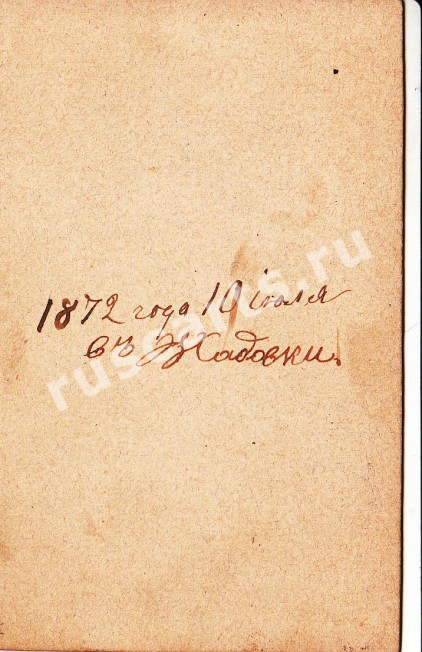 1872 года 10 іюля
въ Жадовки.
ruscarts.ru